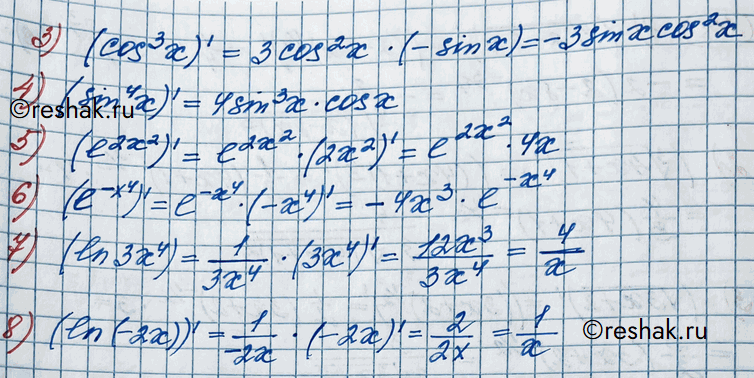 3) (cos³x)' = 3cos²x · (-sinx) = -3sinxcos²x
4) (sin⁴x)' = 4sin³x · cosx
©reshak.ru
5) (e^{2x²})' = e^{2x²} · (2x²)' = e^{2x²} · 4x
6) (e^{-x⁴})' = e^{-x⁴} · (-x⁴)' = -4x³ · e^{-x⁴}
7) (ln3x⁴) = 1/3x⁴ · (3x⁴)' = 12x³/3x⁴ = 4/x
8) (ln(-2x))' = 1/-2x · (-2x)' = 2/2x = 1/x
©reshak.ru